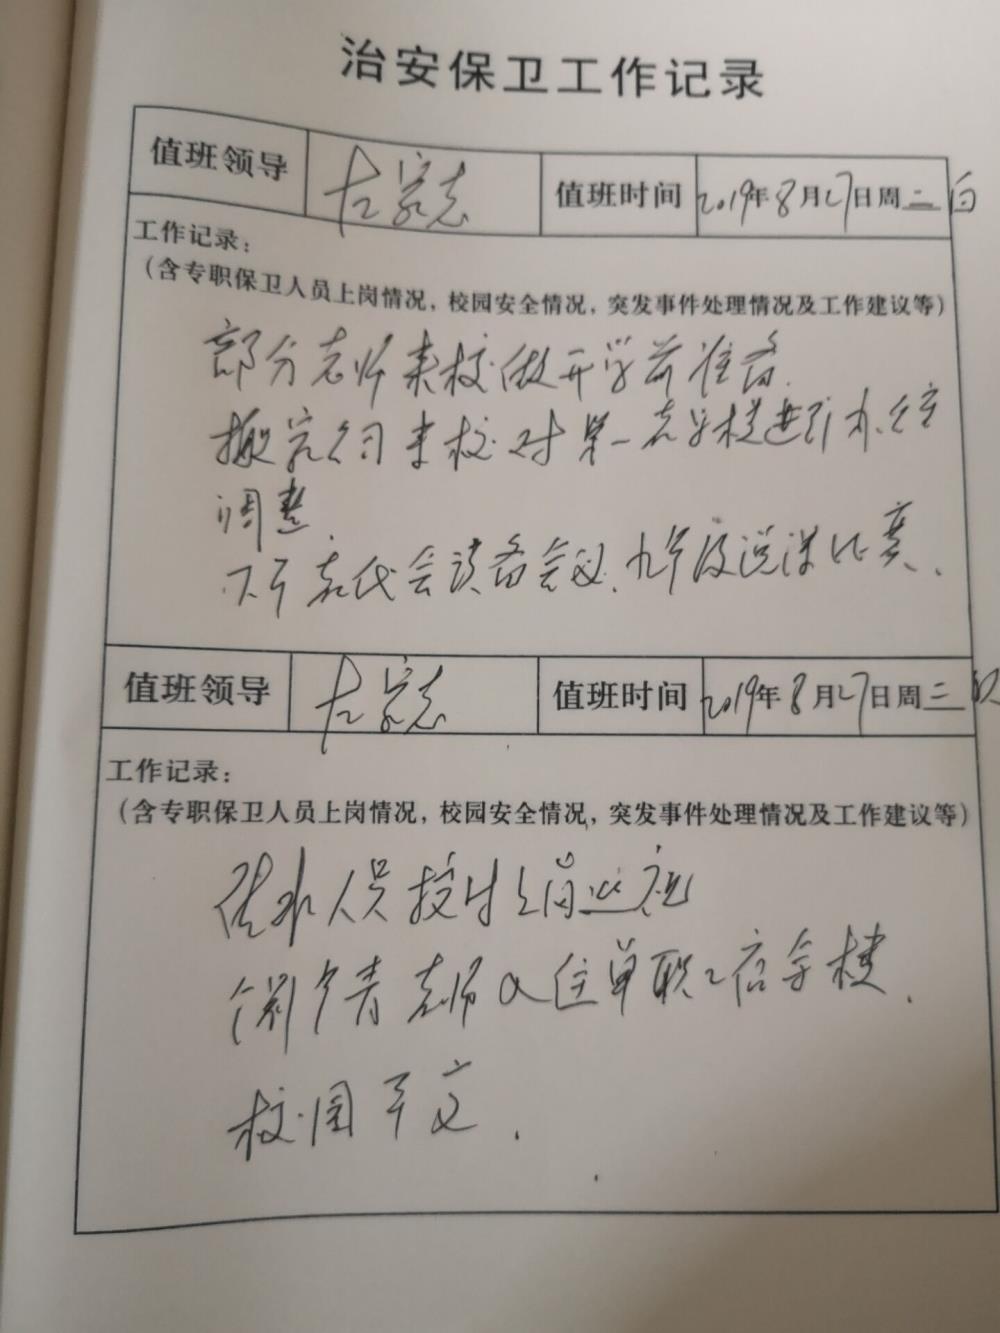 治安保卫工作记录
值班领导 左家志 值班时间 2019年8月27日周二白
工作记录：
（含专职保卫人员上岗情况，校园安全情况，突发事件处理情况及工作建议等）
部分老师来校做开学前准备.
搬家公司来校对第一教学楼进行办公室
调整.
下午教代会预备会议、九年级说课比赛.
值班领导 左家志 值班时间 2019年8月27日周二夜
工作记录：
（含专职保卫人员上岗情况，校园安全情况，突发事件处理情况及工作建议等）
保卫人员按时上岗巡视
青老师入住单职工宿舍楼.
校园平安.